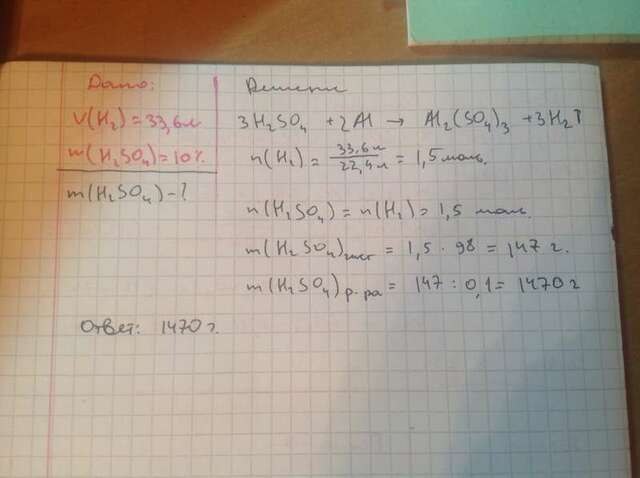 Дано:
V(H₂) = 33,6 л
m(H₂SO₄) = 10%
m(H₂SO₄) - ?
Решение
3H₂SO₄ + 2Al → Al₂(SO₄)₃ + 3H₂↑
n(H₂) = 33,6 л / 22,4 л = 1,5 моль.
n(H₂SO₄) = n(H₂) = 1,5 моль.
m(H₂SO₄)чист = 1,5 · 98 = 147 г.
m(H₂SO₄)р-ра = 147 : 0,1 = 1470 г
Ответ: 1470 г.